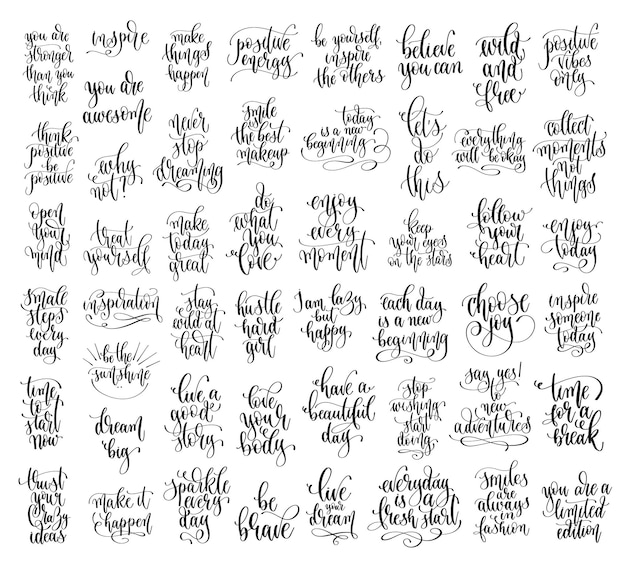 you are
stronger
than you
think
inspire
make
things
happen
positive
energy
be yourself,
inspire
the others
believe
you can
wild
and
free
positive
vibes
only
you are
awesome
think
positive
be
positive
why
not?
never
stop
dreaming
smile
is
the best
makeup
today
is a new
beginning
let's
do
this
everything
will be okay
collect
moments
not
things
open
your
mind
treat
yourself
make
today
great
do
what
you
love
enjoy
every
moment
keep
your eyes
on the stars
follow
your
heart
enjoy
today
small
steps
every
day
inspiration
stay
wild at
heart
hustle
hard
girl
I am lazy
but
happy
each day
is a new
beginning
choose
joy
inspire
someone
today
be the
sunshine
time
to
start
now
dream
big
live a
good
story
love
your
body
have a
beautiful
day
stop
wishing
start
doing
say yes!
to
new
adventures
time
for a
break
trust
your
crazy
ideas
make it
happen
sparkle
every
day
be
brave
live
your
dream
everyday
is a
fresh start
smiles
are
always
in
fashion
you are a
limited
edition